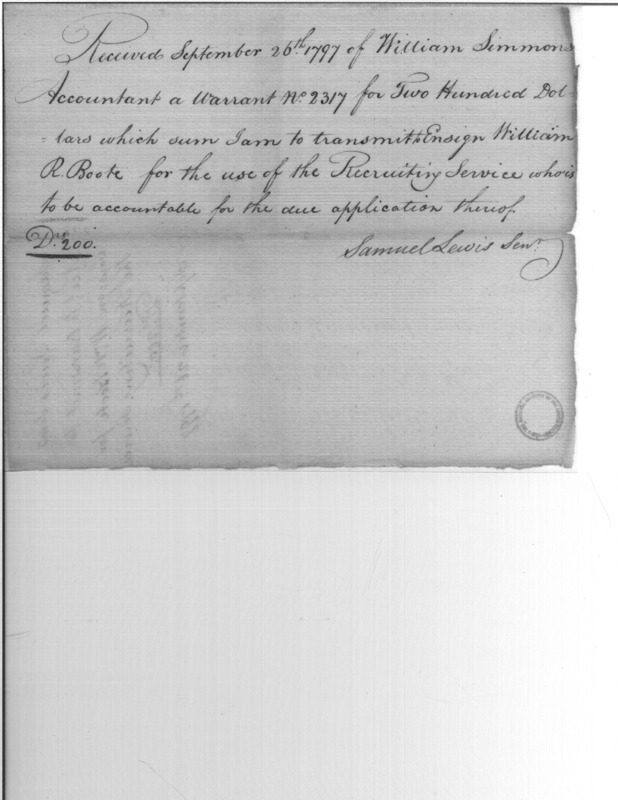 Received September 26th. 1797 of William Simmons
Accountant a Warrant No. 2317 for Two Hundred Dol
=lars which sum I am to transmit to Ensign William
R. Boote for the use of the Recruiting Service who is
to be accountable for the due application thereof.
Drs. 200.
Samuel Lewis Senr.